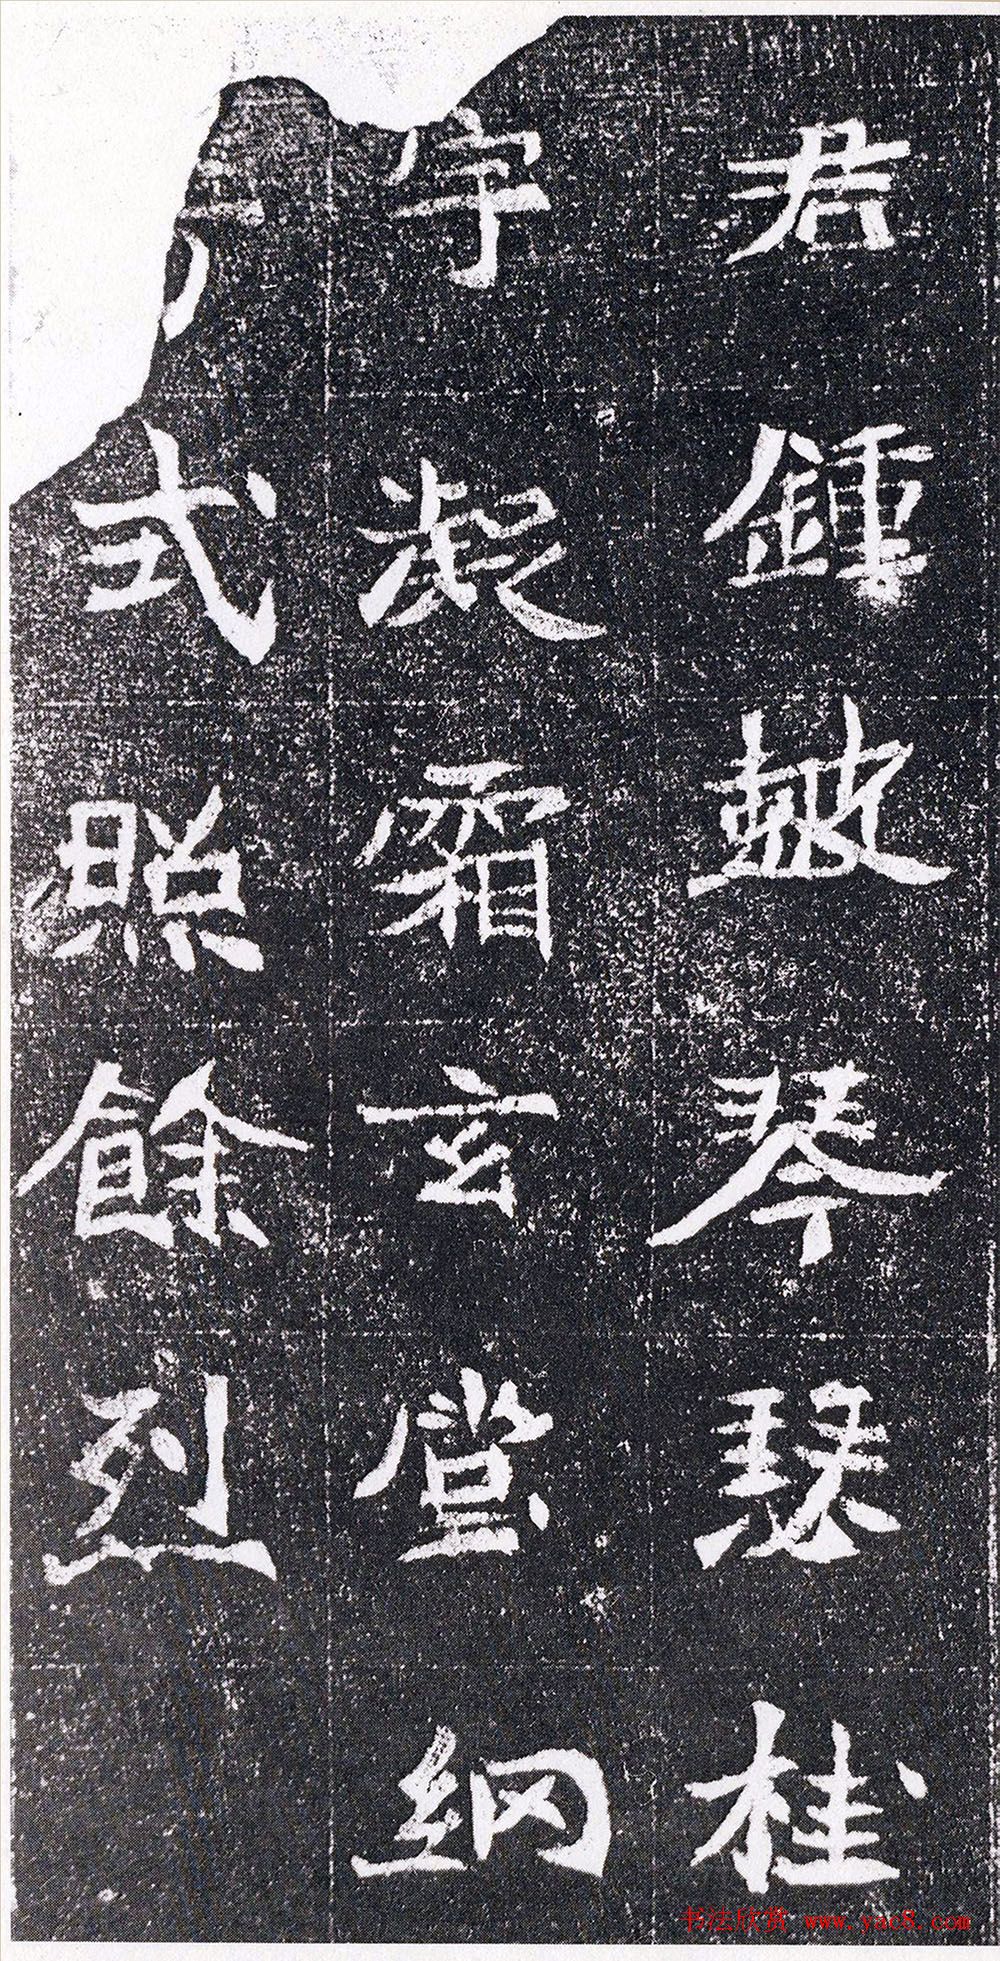 君鍾皷琴瑟桂
宇凝霜玄堂網
式照餘烈
书法欣赏 www.yac8.com